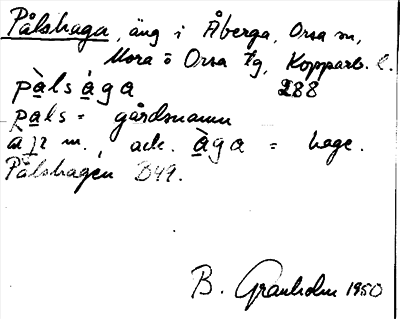 Pålshaga, äng i Åberga, Orsa sn,
Mora o Orsa tg, Kopparb. l.
pàlsága 288
pals = gårdsnamn
m., ack. àga = hage.
Pålshagen D49.
B. Granholm 1950